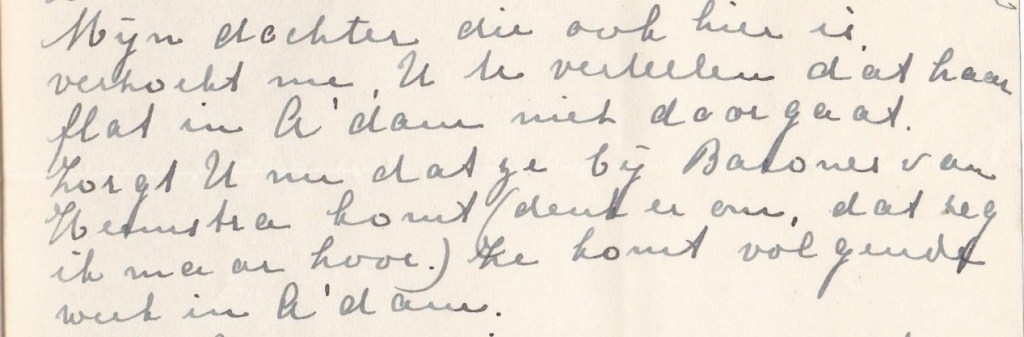 Mijn dochter die ook hier is,
verzoekt me, U te vertellen dat haar
flat in A'dam niet doorgaat.
Zorgt U nu dat ze bij Barones van
Heemstra komt (denk er om, dat zeg
ik maar hoor.) Ze komt volgende
week in A'dam.